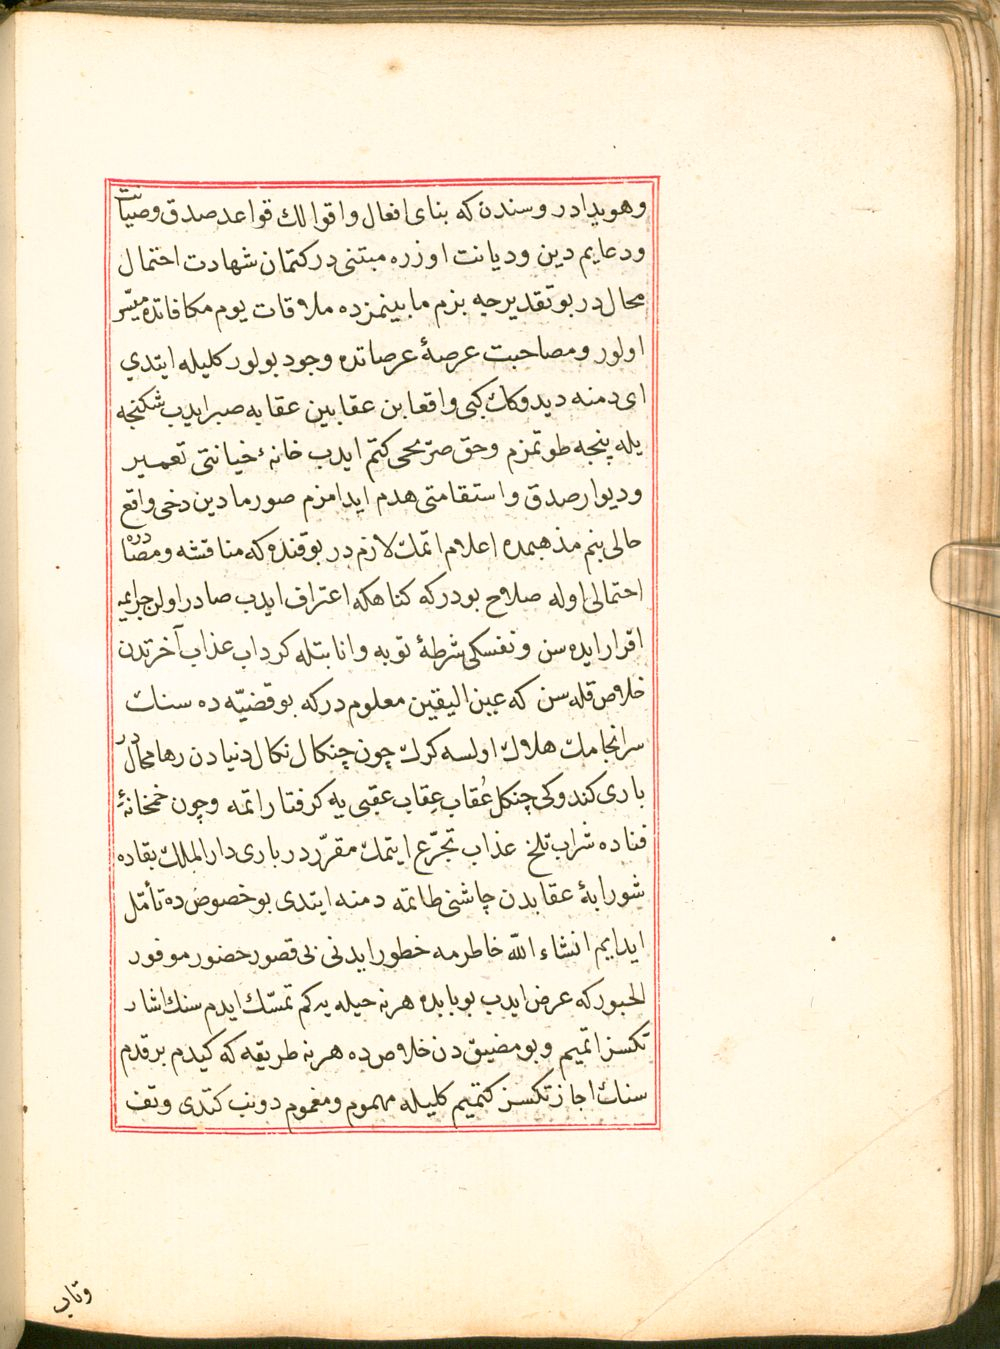 وهویدادر وسندن که بنای افعال واقوالك قواعد صدق وصیانت
ودعایم دین ودیانت اوزره مبتنی در کتمان شهادت احتمال
محال در بو تقدیرجه بزم مابینمزده ملاقات یوم مکافاتده میسّر
اولور ومصاحبت عرصهٔ عرصاتده وجود بولور کلیله ایتدی
ای دمنه دیدوکك کبی واقعا بن عقابین عقابه صبر ایدب شکنجه
یله پنجه طوتمزم وحق صرّیحی کتم ایدب خانهٔ خیانتی تعمیر
ودیوار صدق واستقامتی هدم ایدامزم صورمادین دخی واقع
حالی بنم مذهبمده اعلام اتمك لازم در بوقنده که مناقشه ومضادره
احتمالی اوله صلاح بودر که کناهکه اعتراف ایدب صادر اولن جرایمه
اقرار ایده سن ونفسکی شرطهٔ توبه وانابتله کرداب عذاب آخرتدن
خلاص قله سن که عین الیقین معلوم در که بو قضیّه ده سنك
سرانجامك هلاك اولسه کرك چون چنکال نکال دنیادن رها محال در
باری کندوکی چنکل عُقاب عِقاب عقبی یه کرفتار اتمه وچون خمخانهٔ
فناده شراب تلخ عذاب تجرّع ایتمك مقرّر در باری دار الملك بقاده
شورابهٔ عقابدن چاشنی طاتمه دمنه ایتدی بو خصوص ده تأمّل
ایدایم انشاء الله خاطرمه خطور ایدنی بی قصور حضور موفور
الحبورکه عرض ایدب بوبابده هر نه حیله یه کم تمسّك ایدم سنك اشار
تکسز اتمیم وبو مضیق دن خلاص ده هر نه طریقه که کیدم بر قدم
سنك اجازتکسز کتمیم کلیله مهموم ومغموم دونب کتدی وتف
وتاب